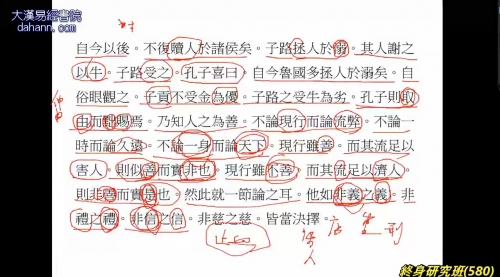 大漢易經書院
dahann.com
自今以後。不復贖人於諸侯矣。子路拯人於溺。其人謝之
以牛。子路受之。孔子喜曰。自今魯國多拯人於溺矣。自
俗眼觀之。子貢不受金為優。子路之受牛為劣。孔子則取
由而黜賜焉。乃知人之為善。不論現行而論流弊。不論一
時而論久遠。不論一身而論天下。現行雖善。而其流足以
害人。則似善而實非也。現行雖不善。而其流足以濟人。
則非善而實是也。然此就一節論之耳。他如非義之義。非
禮之禮。非信之信。非慈之慈。皆當決擇。
終身研究班(580)